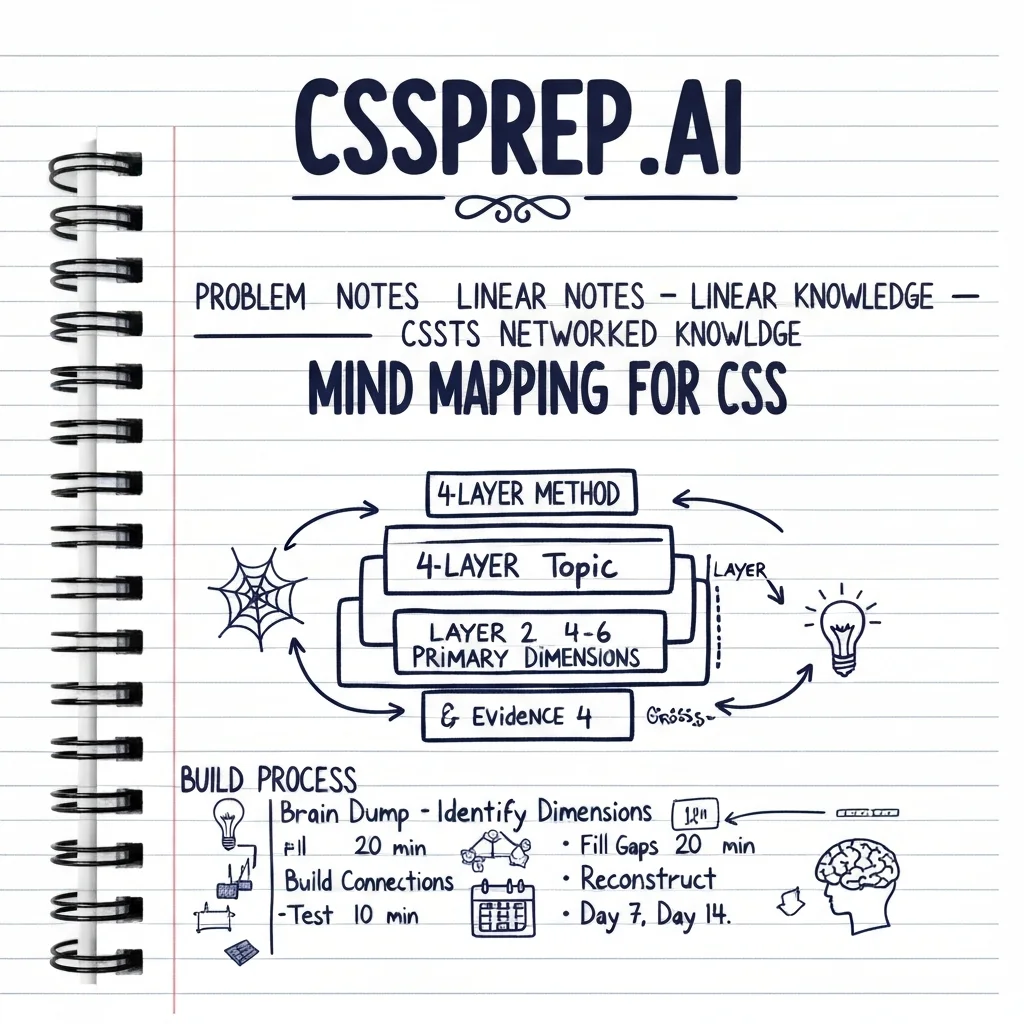 CSSPREP.AI
PROBLEM NOTES LINEAR NOTES – LINEAR KNOWLEDGE —
CSSTS NETWORKED KNOWLDGE
MIND MAPPING FOR CSS
4-LAYER METHOD
4-LAYER Topic
LAYER
LAYER 2 4-6
PRIMARY DIMENSIONS
& EVIDENCE 4
BUILD PROCESS
Brain Dump - Identify Dimensions
20 min
• Fill Gaps 20 min
Build Connections
• Reconstruct
-Test 10 min
• Day 7, Day 14.